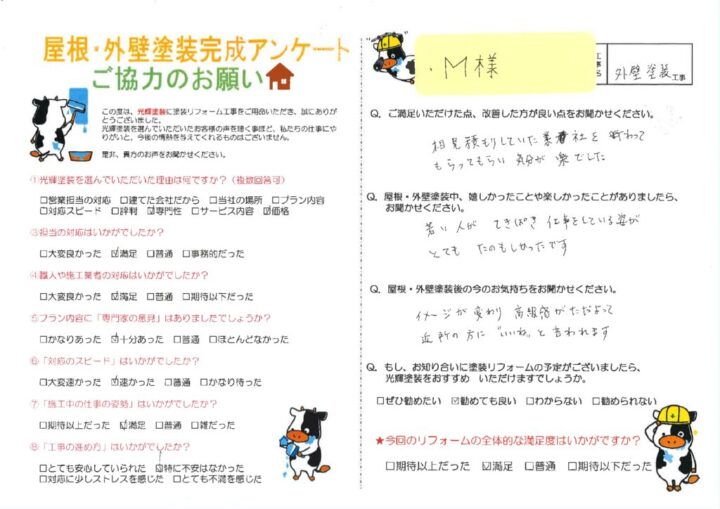 屋根・外壁塗装完成アンケート
ご協力のお願い
この度は、光輝塗装に塗装リフォーム工事をご用命いただき、誠にありが
とうございました。
光輝塗装を選んでいただいたお客様の声を聴く事ほど、私たちの仕事にや
りがいと、今後の情熱を与えてくれるものはございません。
是非、貴方のお声をお聞かせください。
①光輝塗装を選んでいただいた理由は何ですか？（複数回答可）
□営業担当の対応 □建てた会社だから □当社の場所 □プラン内容
□対応スピード □評判 ☑専門性 □サービス内容 ☑価格
③担当の対応はいかがでしたか？
□大変良かった ☑満足 □普通 □事務的だった
④職人や施工業者の対応はいかがでしたか？
□大変良かった ☑満足 □普通 □期待以下だった
⑤プラン内容に「専門家の意見」はありましたでしょうか？
□かなりあった ☑十分あった □普通 □ほとんどなかった
⑥「対応のスピード」はいかがでしたか？
□大変速かった ☑速かった □普通 □かなり待った
⑦「施工中の仕事の姿勢」はいかがでしたか？
□期待以上だった ☑満足 □普通 □雑だった
⑧「工事の進め方」はいかがでしたか？
□とても安心していられた ☑特に不安はなかった
□対応に少しストレスを感じた □とても不満を感じた
M様
外壁塗装工事
Q. ご満足いただけた点、改善した方が良い点をお聞かせください。
相見積もりしていた業者社を断わって
もらってもらい 気分が楽でした
Q. 屋根・外壁塗装中、嬉しかったことや楽しかったことがありましたら、
お聞かせください。
若い人が てきぱき 仕事をしている姿が
とても たのもしかったです
Q. 屋根・外壁塗装後の今のお気持ちをお聞かせください。
イメージが変わり 高級感がただよって
近所の方に "いいね" と言われます
Q. もし、お知り合いに塗装リフォームの予定がございましたら、
光輝塗装をおすすめ いただけますでしょうか。
□ぜひ勧めたい ☑勧めても良い □わからない □勧められない
★今回のリフォームの全体的な満足度はいかがですか？
□期待以上だった ☑満足 □普通 □期待以下だった